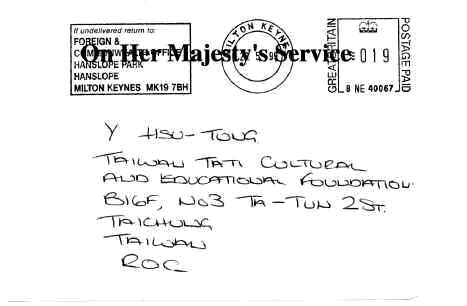 If undelivered return to:
FOREIGN &
COMMONWEALTH OFFICE
HANSLOPE PARK
HANSLOPE
MILTON KEYNES MK19 7BH
On Her Majesty's Service
MILTON KEYNES
GREAT BRITAIN
019
POSTAGE PAID
8 NE 40067
Y HSU-TUNG
TAIWAN TATI CULTURAL
AND EDUCATIONAL FOUNDATION
B16F, No3 TA-TUN 2ST.
TAICHUNG
TAIWAN
ROC